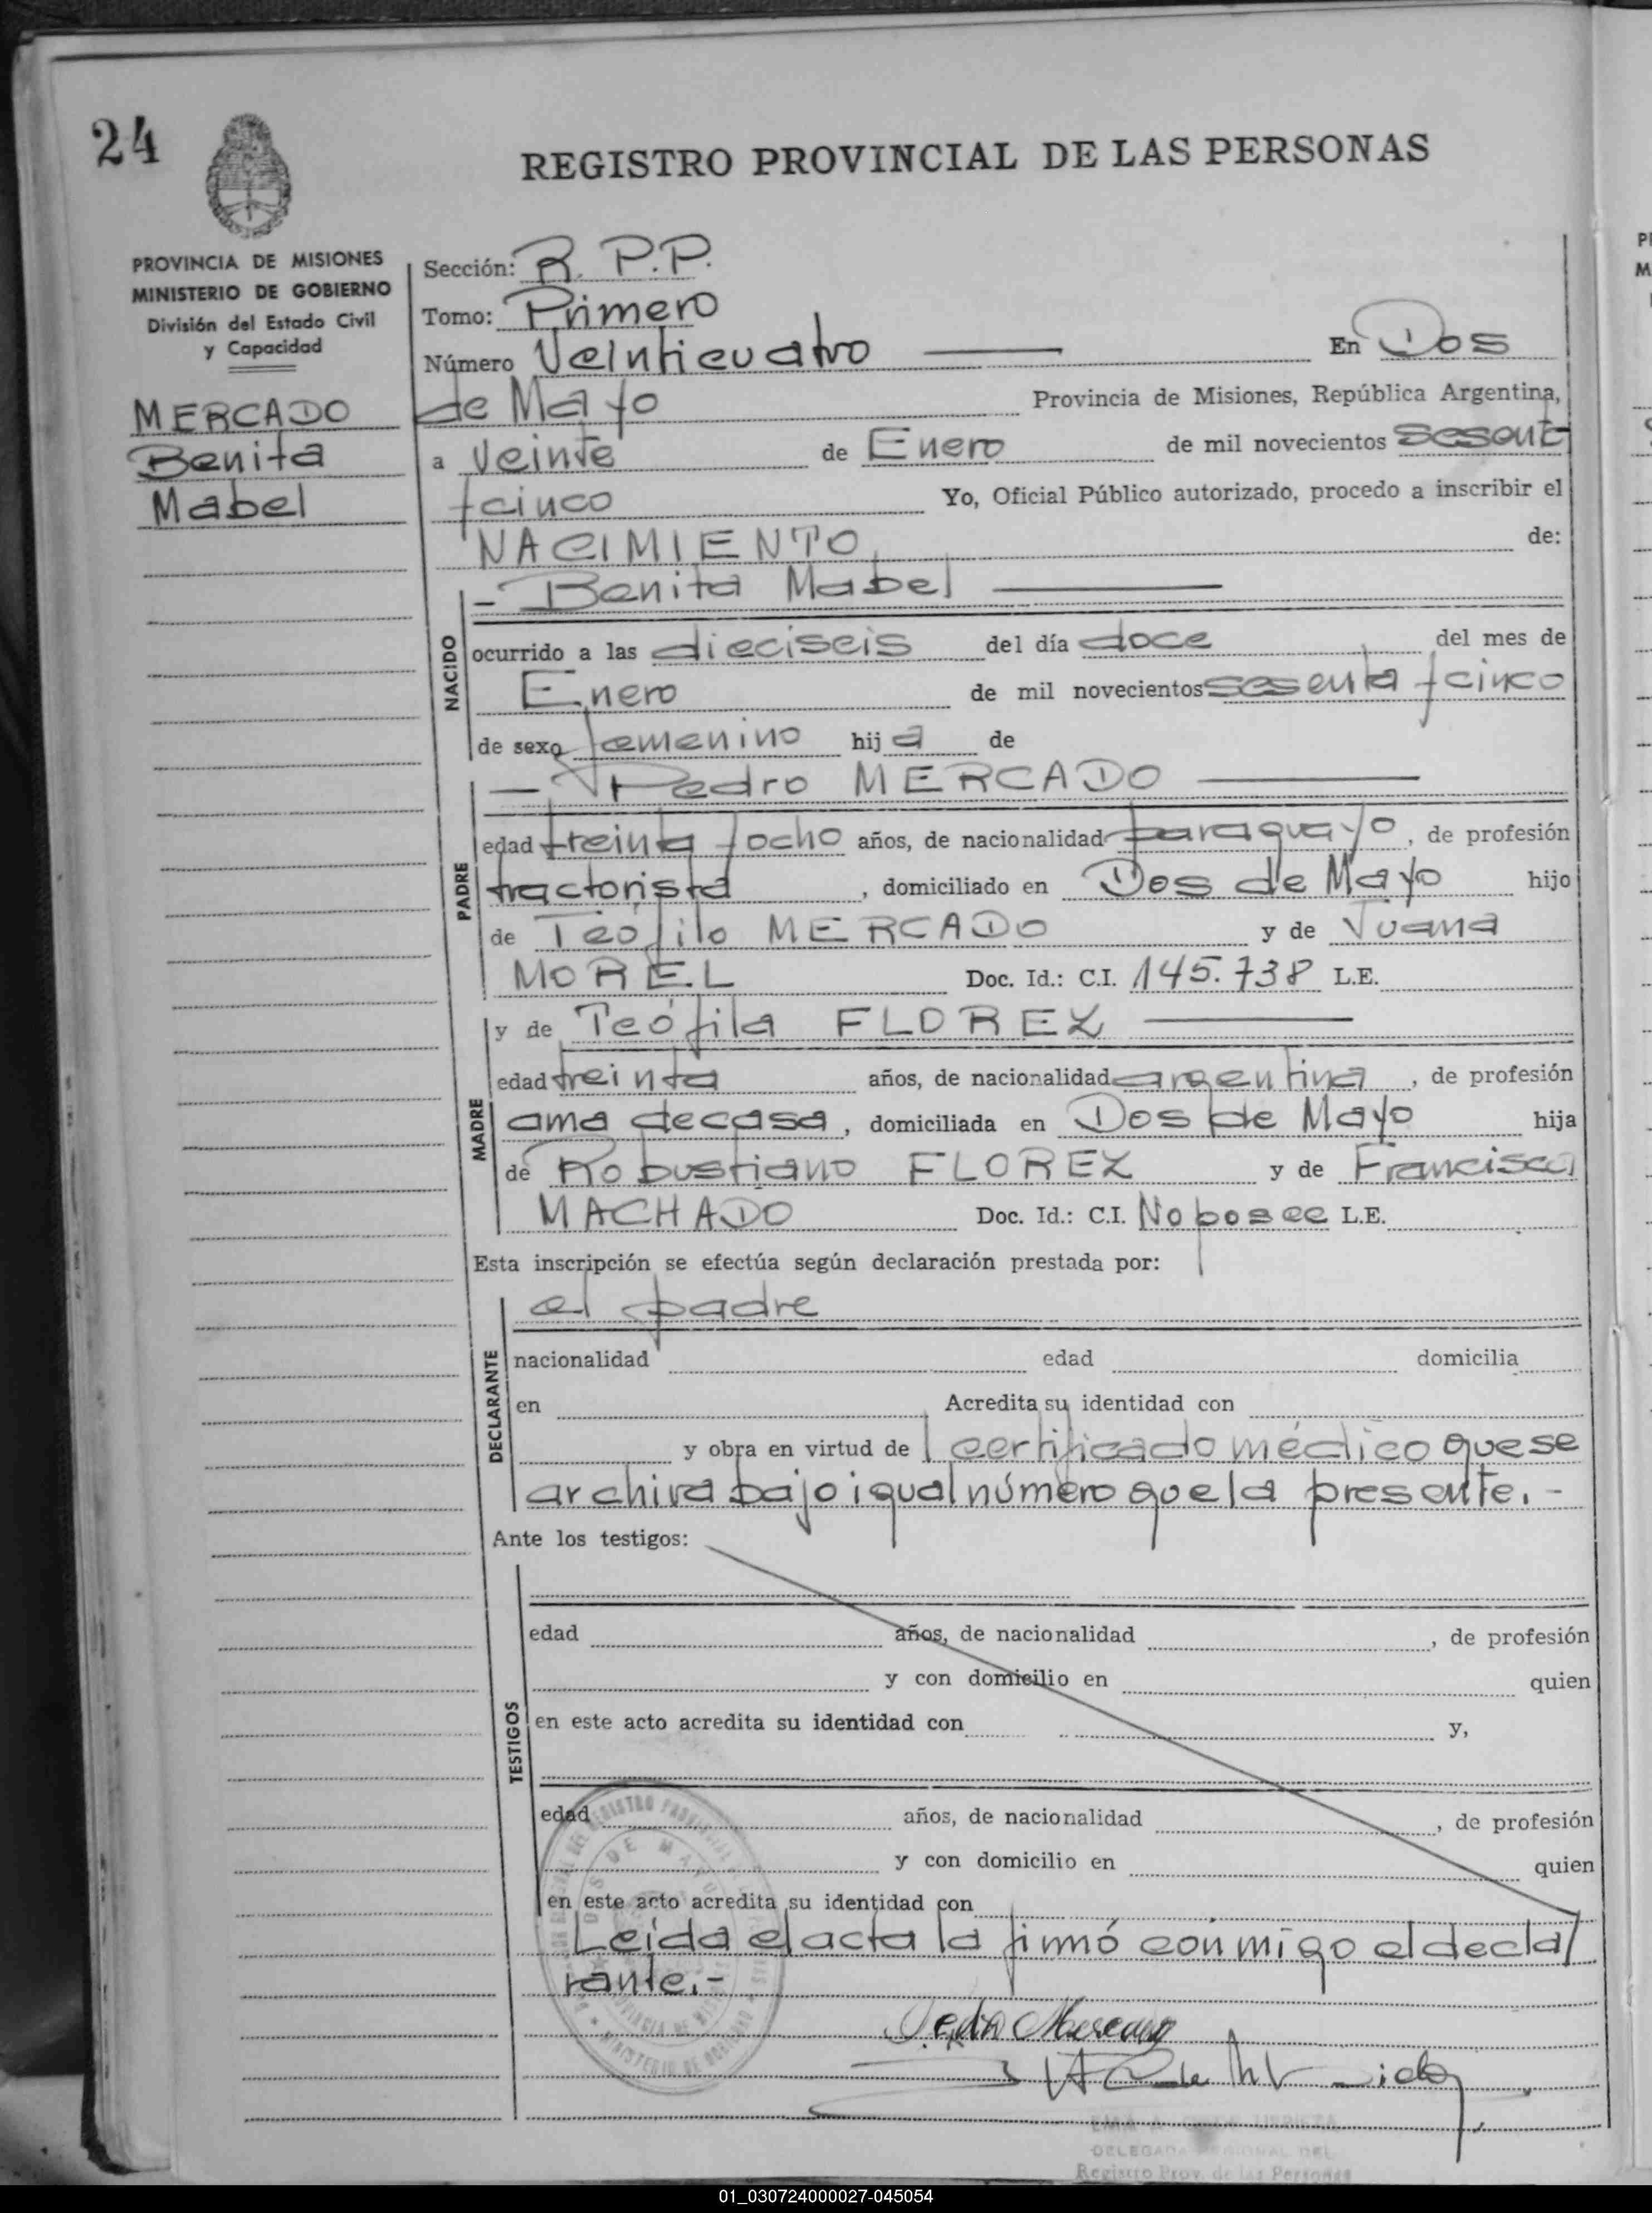 24
REGISTRO PROVINCIAL DE LAS PERSONAS
PROVINCIA DE MISIONES
MINISTERIO DE GOBIERNO
División del Estado Civil
y Capacidad
MERCADO
Benita
Mabel
Sección: R. P.P.
Tomo: Primero
Número Veinticuatro En Dos
de Mayo Provincia de Misiones, República Argentina,
a veinte de Enero de mil novecientos sesenta
y cinco Yo, Oficial Público autorizado, procedo a inscribir el
NACIMIENTO de:
NACIDO
- Benita Mabel
ocurrido a las dieciseis del día doce del mes de
Enero de mil novecientos sesenta y cinco
de sexo femenino hij a de
PADRE
- Pedro MERCADO
edad treinta y ocho años, de nacionalidad paraguayo, de profesión
tractorista, domiciliado en Dos de Mayo hijo
de Teófilo MERCADO y de Juana
MOREL Doc. Id.: C.I. 145.738 L.E.
MADRE
y de Teófila FLOREZ
edad treinta años, de nacionalidad argentina, de profesión
ama de casa, domiciliada en Dos de Mayo hija
de Robustiano FLOREZ y de Francisca
MACHADO Doc. Id.: C.I. No posee L.E.
Esta inscripción se efectúa según declaración prestada por:
DECLARANTE
el padre
nacionalidad edad domicilia
en Acredita su identidad con
y obra en virtud de certificado médico que se
archiva bajo igual número que la presente.-
Ante los testigos:
TESTIGOS
edad años, de nacionalidad , de profesión
y con domicilio en quien
en este acto acredita su identidad con y,
edad años, de nacionalidad , de profesión
y con domicilio en quien
en este acto acredita su identidad con
Leída el acta la firmó conmigo el decla
rante.-
Pedro Mercado
DELEGADA REGIONAL DEL
Registro Prov. de las Personas
01_030724000027-045054